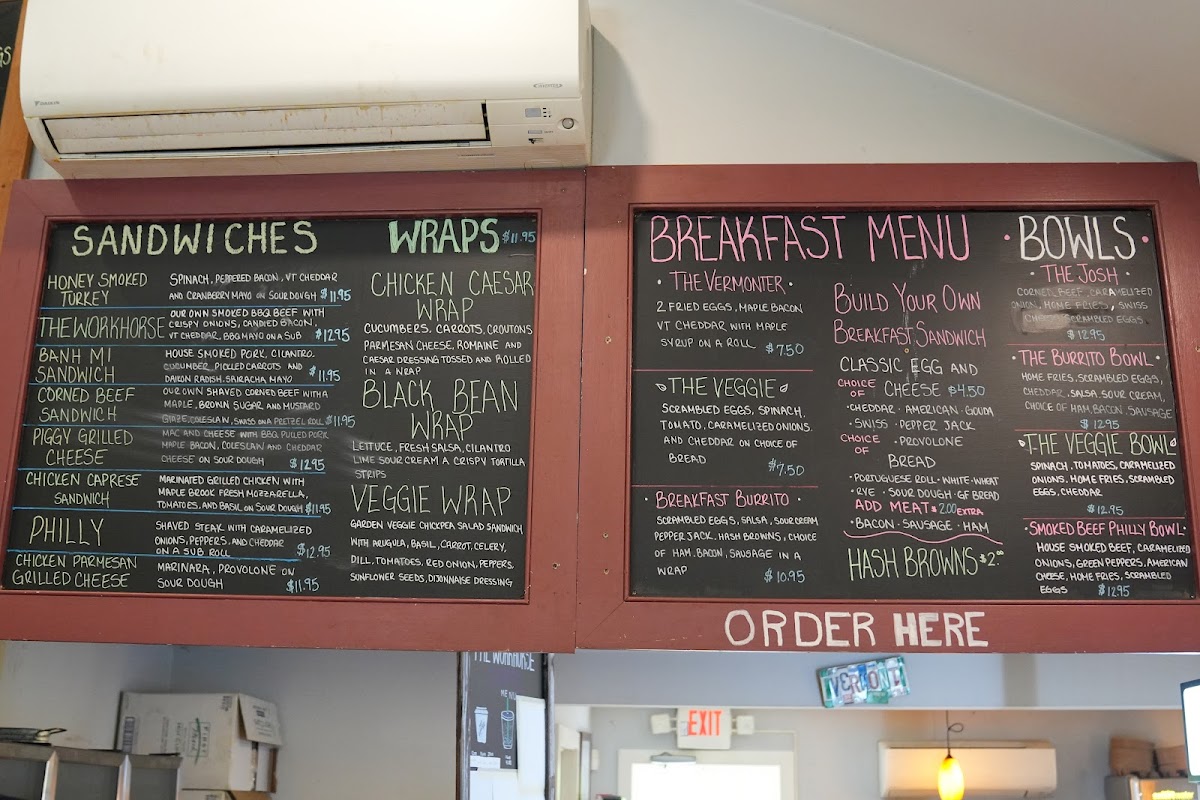 DAIKIN
SANDWICHES
HONEY SMOKED
TURKEY
SPINACH, PEPPERED BACON, VT CHEDDAR
AND CRANBERRY MAYO ON SOUR DOUGH $11.95
THE WORKHORSE
OUR OWN SMOKED BBQ BEEF WITH
CRISPY ONIONS, CANDIED BACON,
VT CHEDDAR, BBQ MAYO ON A SUB $12.95
BANH MI
SANDWICH
HOUSE SMOKED PORK, CILANTRO,
CUCUMBER, PICKLED CARROTS AND
DAIKON RADISH, SRIRACHA, MAYO $11.95
CORNED BEEF
SANDWICH
OUR OWN SHAVED CORNED BEEF WITH A
MAPLE, BROWN SUGAR AND MUSTARD
GLAZE, COLESLAW, SWISS ON A PRETZEL ROLL $11.95
PIGGY GRILLED
CHEESE
MAC AND CHEESE WITH BBQ PULLED PORK
MAPLE BACON, COLESLAW AND CHEDDAR
CHEESE ON SOUR DOUGH $12.95
CHICKEN CAPRESE
SANDWICH
MARINATED GRILLED CHICKEN WITH
MAPLE BROOK FRESH MOZZARELLA,
TOMATOES, AND BASIL ON SOUR DOUGH $11.95
PHILLY
SHAVED STEAK WITH CARAMELIZED
ONIONS, PEPPERS, AND CHEDDAR
ON A SUB ROLL $12.95
CHICKEN PARMESAN
GRILLED CHEESE
MARINARA, PROVOLONE ON
SOUR DOUGH $11.95
WRAPS $11.95
CHICKEN CAESAR
WRAP
CUCUMBERS, CARROTS, CROUTONS
PARMESAN CHEESE, ROMAINE AND
CAESAR DRESSING TOSSED AND ROLLED
IN A WRAP
BLACK BEAN
WRAP
LETTUCE, FRESH SALSA, CILANTRO
LIME SOUR CREAM & CRISPY TORTILLA
STRIPS
VEGGIE WRAP
GARDEN VEGGIE CHICKPEA SALAD SANDWICH
WITH ARUGULA, BASIL, CARROT, CELERY,
DILL, TOMATOES, RED ONION, PEPPERS,
SUNFLOWER SEEDS, DIJONNAISE DRESSING
BREAKFAST MENU
· THE VERMONTER ·
2 FRIED EGGS, MAPLE BACON
VT CHEDDAR WITH MAPLE
SYRUP ON A ROLL $7.50
THE VEGGIE
SCRAMBLED EGGS, SPINACH,
TOMATO, CARAMELIZED ONIONS
AND CHEDDAR ON CHOICE OF
BREAD $7.50
· BREAKFAST BURRITO ·
SCRAMBLED EGGS, SALSA, SOUR CREAM
PEPPER JACK, HASH BROWNS, CHOICE
OF HAM, BACON, SAUSAGE IN A
WRAP $10.95
BUILD YOUR OWN
BREAKFAST SANDWICH
CLASSIC EGG AND
CHOICE OF CHEESE $4.50
· CHEDDAR · AMERICAN · GOUDA
· SWISS · PEPPER JACK
· PROVOLONE
CHOICE OF BREAD
· PORTUGUESE ROLL · WHITE · WHEAT
· RYE · SOUR DOUGH · GF BREAD
ADD MEAT $2.00 EXTRA
· BACON · SAUSAGE · HAM
HASH BROWNS $2.00
· BOWLS ·
· THE JOSH ·
CORNED BEEF, CARAMELIZED
ONION, HOME FRIES, SWISS
CHEESE, SCRAMBLED EGGS
$12.95
· THE BURRITO BOWL ·
HOME FRIES, SCRAMBLED EGGS,
CHEDDAR, SALSA, SOUR CREAM,
CHOICE OF HAM, BACON, SAUSAGE
$12.95
THE VEGGIE BOWL
SPINACH, TOMATOES, CARAMELIZED
ONIONS, HOME FRIES, SCRAMBLED
EGGS, CHEDDAR
$12.95
· SMOKED BEEF PHILLY BOWL ·
HOUSE SMOKED BEEF, CARAMELIZED
ONIONS, GREEN PEPPERS, AMERICAN
CHEESE, HOME FRIES, SCRAMBLED
EGGS $12.95
ORDER HERE
THE WORKHORSE
MENU
VERMONT
EXIT